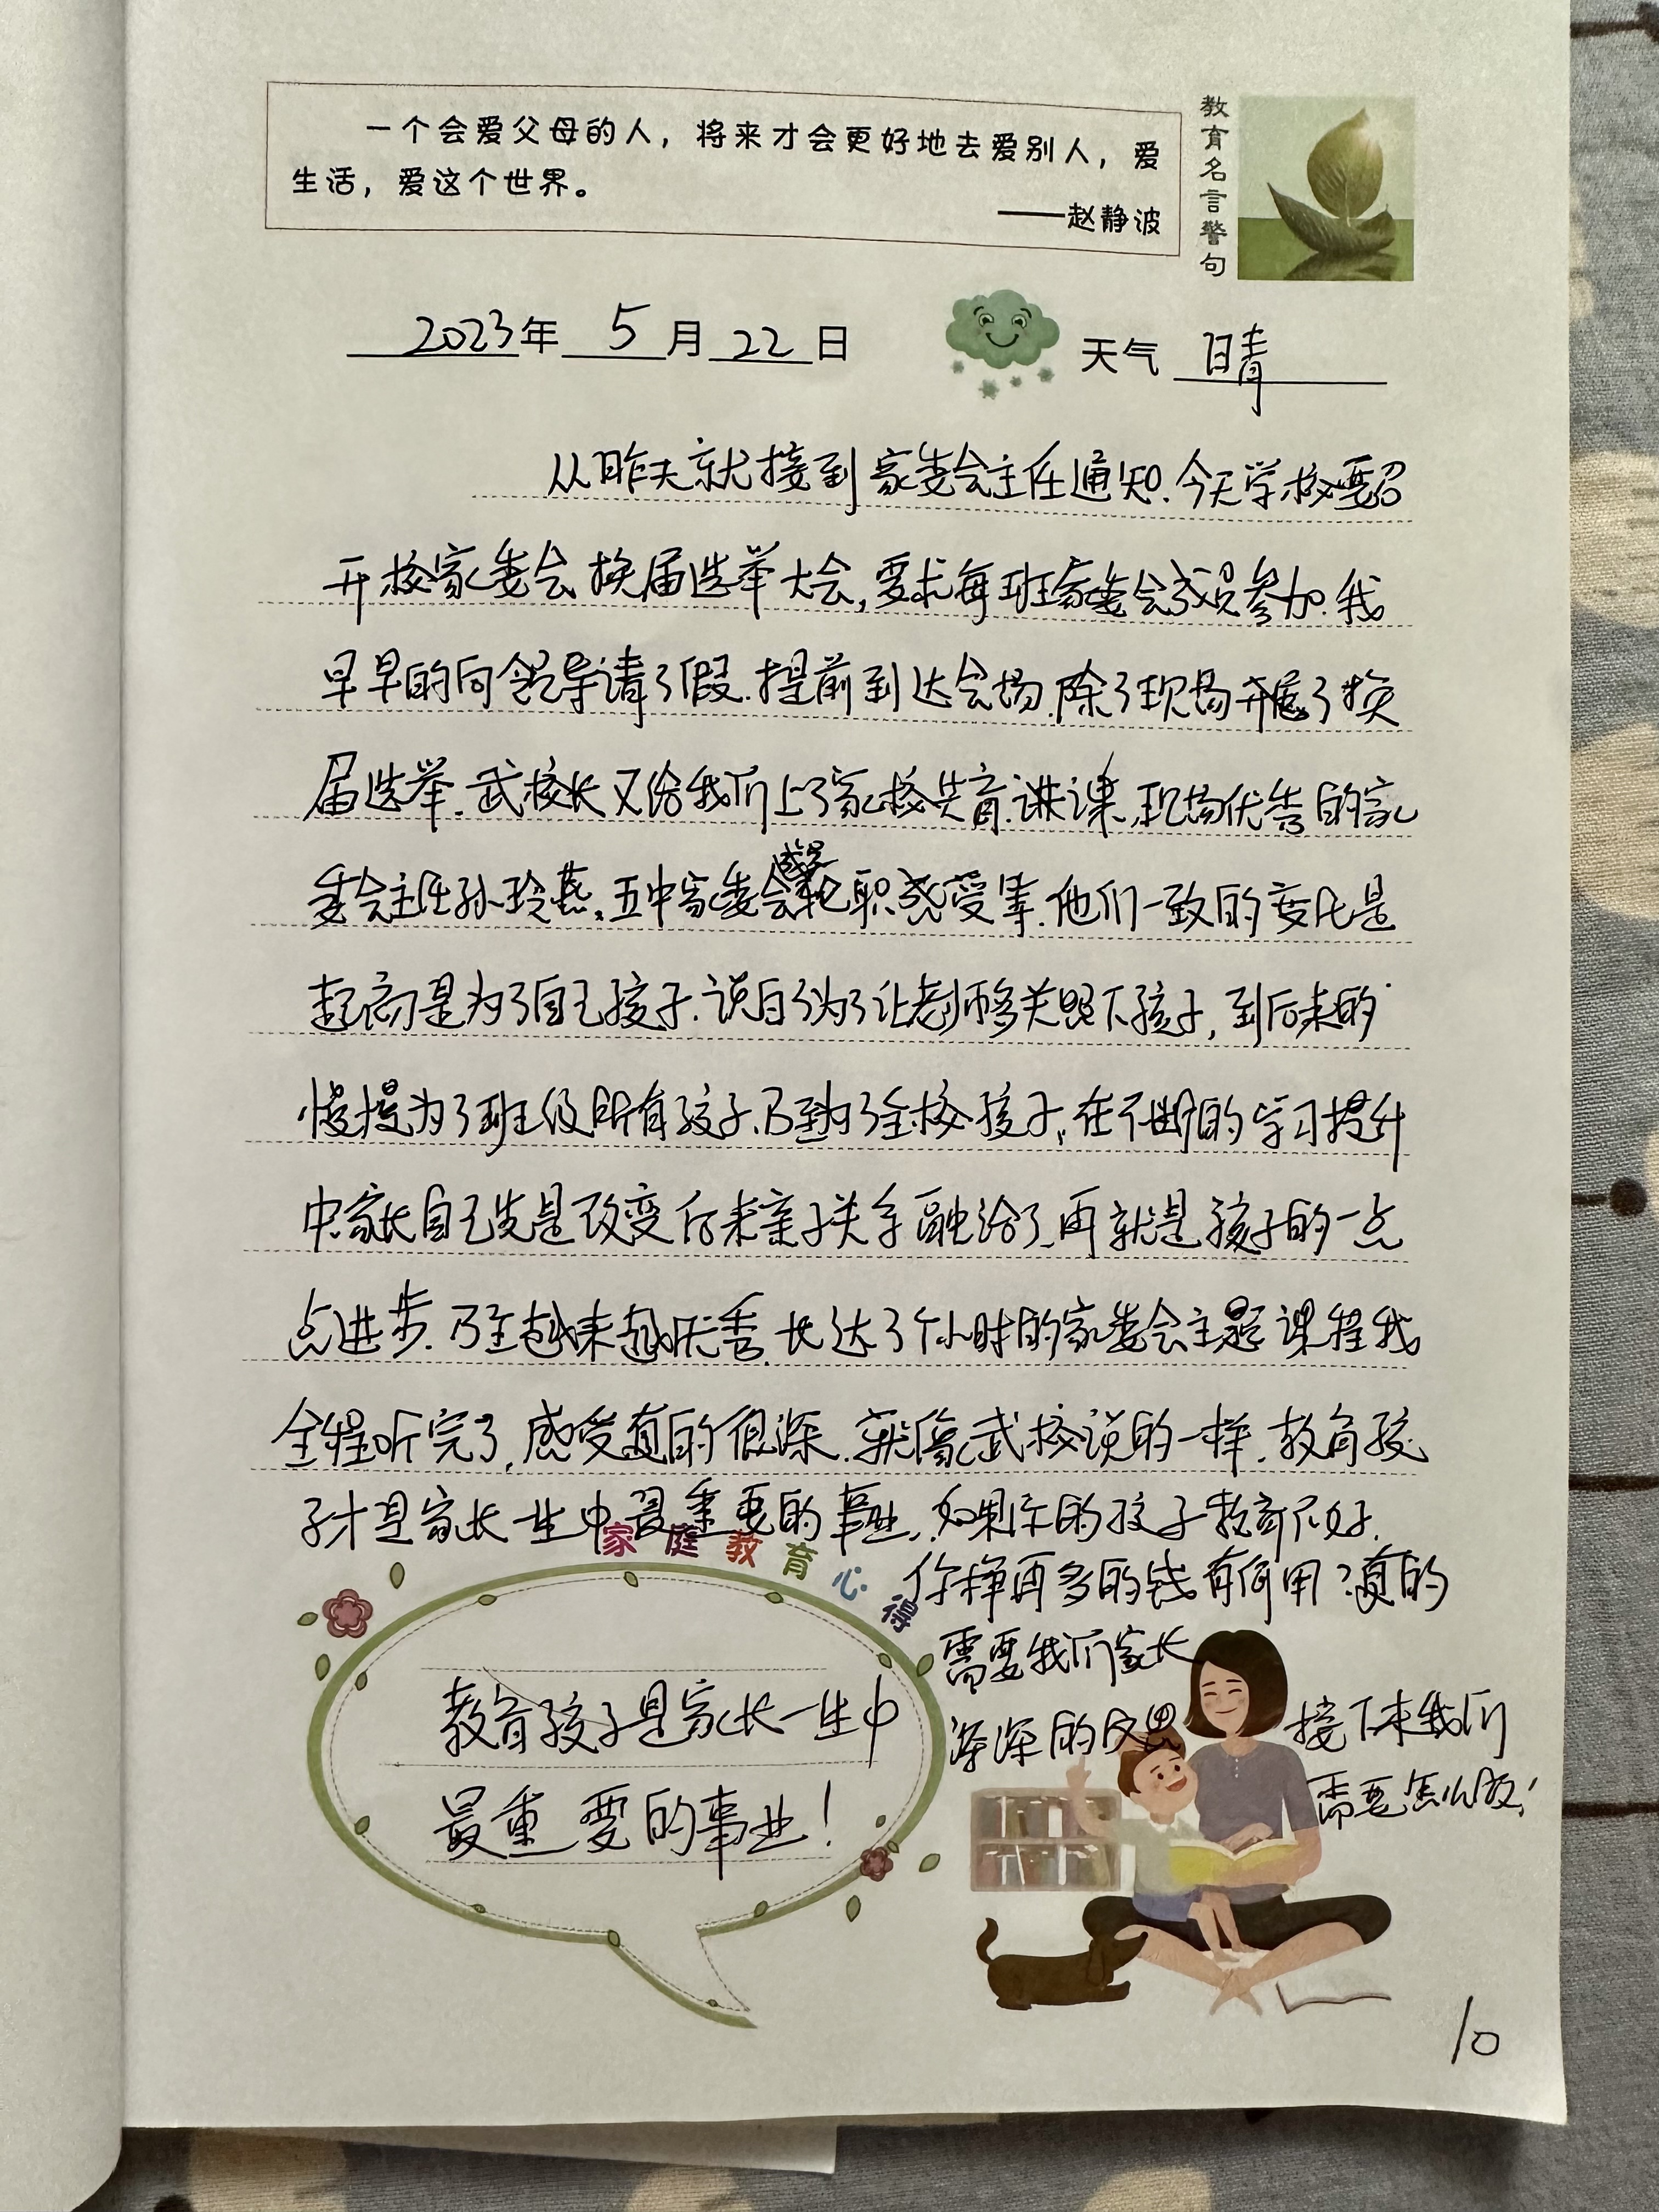 一个会爱父母的人，将来才会更好地去爱别人，爱
生活，爱这个世界。
——赵静波
教育名言警句
2023年 5月22日
天气 晴
从昨天就接到家委会主任通知.今天学校要召
开校家委会换届选举大会,要求每班家委会成员参加.我
早早的向领导请了假.提前到达会场.除了现场开展了换
届选举.武校长又给我们上了家校共育讲课.现场优告的家
委会主任孙玲燕,五中家委会 成员 职感受等.他们一致的变化是
起初是为了自己孩子.说白了为了让老师多关照下孩子,到后来的
慢慢为了班级所有孩子.乃至为了全校孩子,在不断的学习提升
中家长自己先是改变后来亲子关系融洽了.再就是孩子的一点
点进步.乃至越来越优秀.长达3个小时的家委会主题课程我
全程听完了,感受真的很深.就像武校说的一样.教育孩
子才是家长一生中最重要的事业.如果你的孩子教育不好.
你挣再多的钱有何用?真的
需要我们家长
深深的反思 接下来我们
需要怎么做!
家庭教育心得
教育孩子是家长一生中
最重要的事业!
10